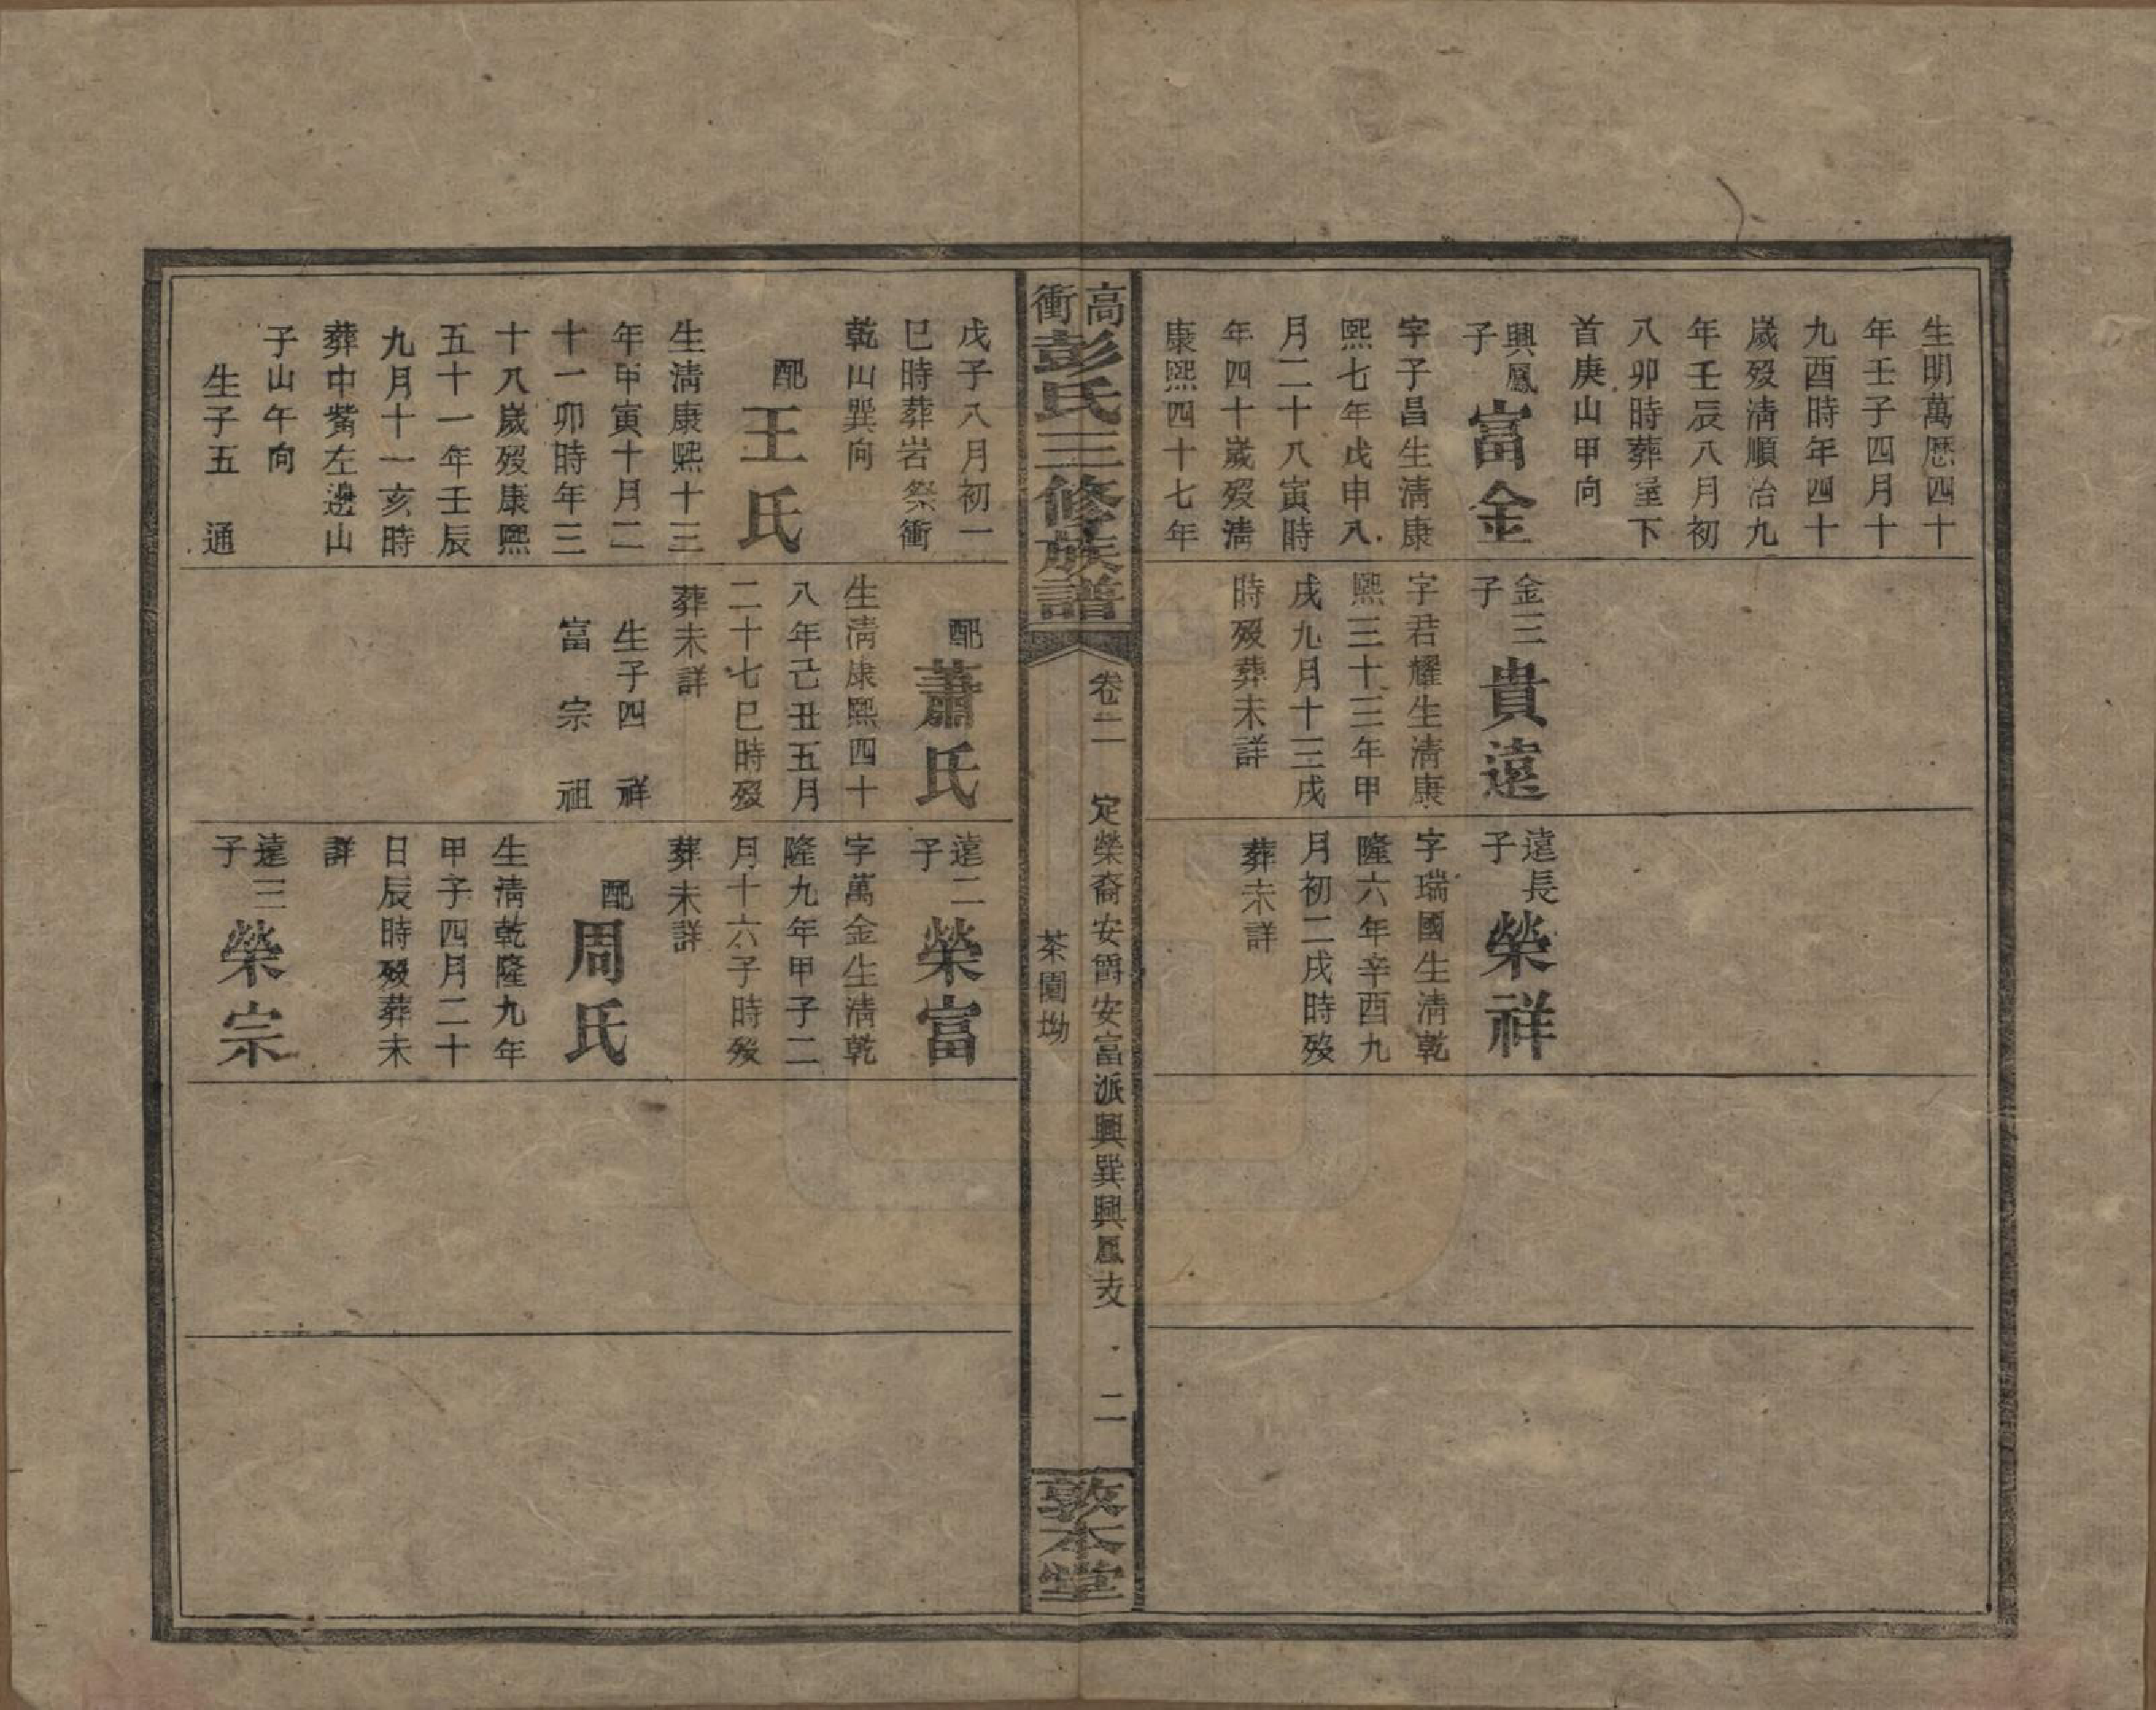 生明萬歷四十
年壬子四月十
九酉時年四十
歲歿清順治九
年壬辰八月初
八卯時葬屋下
首庚山甲向
興鳳
子
富金
字子昌生清康
熙七年戊申八
月二十八寅時
年四十歲歿清
康熙四十七年
金三
子
貴遠
字君耀生清康
熙三十三年甲
戌九月十三戌
時歿葬未詳
遠長
子
榮祥
字瑞國生清乾
隆六年辛酉九
月初二戌時歿
葬未詳
高衝
彭氏三修族譜
卷二
定榮裔安爵安富派興巽興鳳支
二
茶園坳
敦本堂
戊子八月初一
巳時葬岩祭衝
乾山巽向
配
王氏
生清康熙十三
年甲寅十月二
十一卯時年三
十八歲歿康熙
五十一年壬辰
九月十一亥時
葬中觜左邊山
子山午向
生子五 通
配
蕭氏
生清康熙四十
八年己丑五月
二十七巳時歿
葬未詳
生子四 祥
富 宗 祖
遠二
子
榮富
字萬金生清乾
隆九年甲子二
月十六子時歿
葬未詳
配
周氏
生清乾隆九年
甲子四月二十
日辰時歿葬未
詳
遠三
子
榮宗